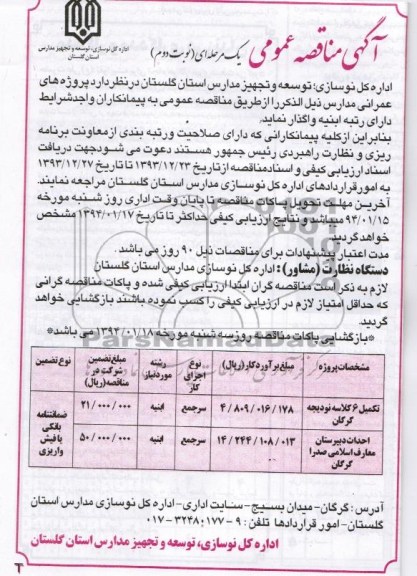 اداره کل نوسازی، توسعه و تجهیز مدارس
استان گلستان
آگهی مناقصه عمومی یک مرحله‌ای (نوبت دوم)
اداره کل نوسازی، توسعه و تجهیز مدارس استان گلستان در نظر دارد پروژه های
عمرانی مدارس ذیل الذکر را از طریق مناقصه عمومی به پیمانکاران واجد شرایط
دارای رتبه ابنیه واگذار نماید.
بنابراین از کلیه پیمانکارانی که دارای صلاحیت و رتبه بندی از معاونت برنامه
ریزی و نظارت راهبردی رئیس جمهور هستند دعوت می شود جهت دریافت
اسناد ارزیابی کیفی و اسناد مناقصه از تاریخ ۱۳۹۳/۱۲/۲۳ تا تاریخ ۱۳۹۳/۱۲/۲۷
به امور قراردادهای اداره کل نوسازی مدارس استان گلستان مراجعه نمایند.
آخرین مهلت تحویل پاکات مناقصه تا پایان وقت اداری روز شنبه مورخه
۹۴/۰۱/۱۵ میباشد و نتایج ارزیابی کیفی حداکثر تا تاریخ ۱۳۹۴/۰۱/۱۷ مشخص
خواهد گردید.
مدت اعتبار پیشنهادات برای مناقصات ذیل ۹۰ روز می باشد.
دستگاه نظارت (مشاور) : اداره کل نوسازی مدارس استان گلستان
لازم به ذکر است مناقصه گران ابتدا ارزیابی کیفی شده و پاکات مناقصه گرانی
که حداقل امتیاز لازم در ارزیابی کیفی را کسب نموده باشند بازگشایی خواهد
گردید.
*بازگشایی پاکات مناقصه روز سه شنبه مورخه ۱۳۹۴/۰۱/۱۸ می باشد*
ParsNamadData
مشخصات پروژه مبلغ برآورد کار (ریال) نوع اجرای کار رشته مورد نیاز مبلغ تضمین شرکت در مناقصه (ریال) نوع تضمین
تکمیل ۶ کلاسه نودیجه گرگان ۴/۸۰۹/۰۱۶/۱۷۸ سرجمع ابنیه ۲۱/۰۰۰/۰۰۰ ضمانتنامه بانکی یا فیش واریزی
احداث دبیرستان معارف اسلامی صدرا گرگان ۱۴/۲۴۴/۱۰۸/۰۱۳ سرجمع ابنیه ۵۰/۰۰۰/۰۰۰
آدرس: گرگان- میدان بسیج- سایت اداری- اداره کل نوسازی مدارس استان
گلستان- امور قراردادها تلفن: ۹-۳۲۴۸۰۱۷۷-۰۱۷
اداره کل نوسازی، توسعه و تجهیز مدارس استان گلستان